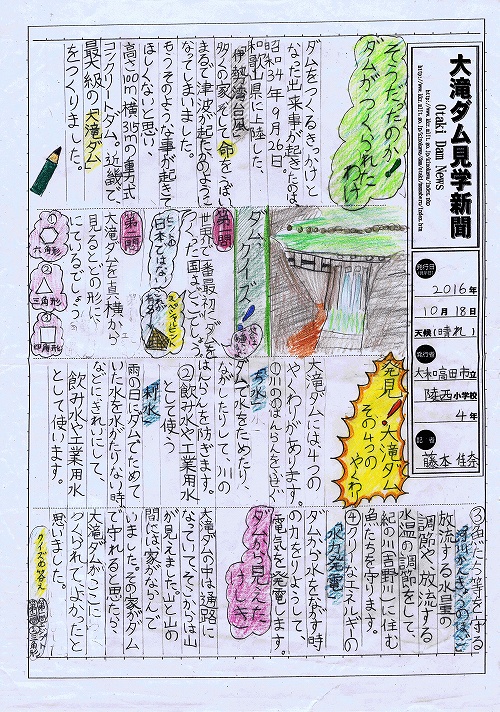 大滝ダム見学新聞
Otaki Dam News
発行日
2016年
10月18日
天候(晴れ)
発行者
大和高田市立
陵西小学校
4年
記者
藤本佳奈
そうだったのか!
ダムがつくられた
わけ
ダムをつくるきっかけと
なった出来事が起きたのは、
昭和34年9月26日。
和歌山県に上陸した、
伊勢湾台風
多くの家、そして命をうばい、
まるで津波が起たかのように
なってしまいました。
もうそのような事が起きて
ほしくないと思い、
高さ100m、横315mの重力式
コンクリートダム。近畿で、
最大級の大滝ダム
をつくりました。
ダムクイズ!
第一問
世界で一番最初にダムを
つくった国はどこでしょう。
ヒント
日本ではない
スペシャルヒント
第二問
大滝ダムを真横から
見るとどの形に、
にているでしょう。
①六角形
②三角形
③四角形
発見!大滝ダム
その4つの
やくわり
大滝ダムには、4つの
やくわりがあります。
①川の水のはんらんをふせぐ
治水
ダムで水をためたり、
ながしたりして、川の
はんらんを防ぎます。
②飲み水や工業用水
として使う
利水
雨の日にダムでためて
いた水を水がたりない時
などに、きれいにして、
飲み水や工業用水
として使います。
③魚たち等を守る
河川かんきょうのほご
放流する水の量の
調節や放流する
水温の調節をして、
紀の川(吉野川)に住む
魚たちを守ります。
④クリーンなエネルギーの
水力発電
ダムから水をながす時
の力をりようして、
電気を発電します。
ダムから見えた
けしき
大滝ダムの中は通路に
なっていて、そこからは山
が見えました。山と山の
間には家がならんで
いました。その家がダム
で守れると思ったら、
大滝ダムがここに
つくられてよかったと
思いました。
クイズの答え
第一問エジプト
第二問②三角形